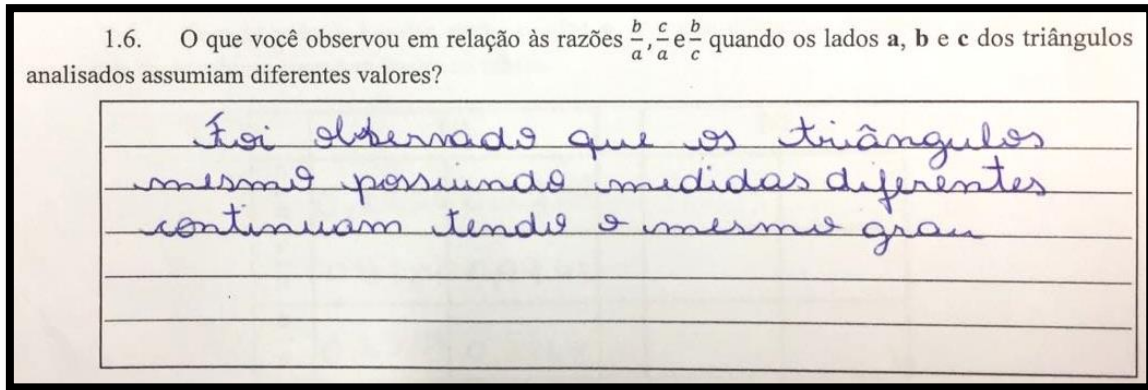 1.6. O que você observou em relação às razões b/a, c/a e b/c quando os lados a, b e c dos triângulos
analisados assumiam diferentes valores?
Foi observado que os triângulos
mesmo possuindo medidas diferentes
continuam tendo o mesmo grau